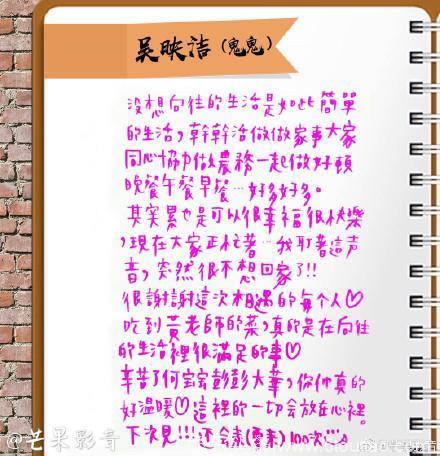 吴映洁（鬼鬼）
沒想向往的生活是如此簡單
的生活，幹幹活做做家事大家
同心協力做農務一起做好頓
晚餐午餐早餐…好多好多。
其实累也是可以很幸福很快樂
，現在大家正忙著…我聽著這声
音，突然很不想回家了!!
很謝謝這次相遇的每个人♡
吃到黃老師的菜，真的是在向往
的生活裡很滿足的事♡
辛苦了何宝宝彭彭大華，你们真的
好温暖♡這裡的一切会放在心裡。
下次見!!!还会来(要来)100次!!!
@芒果影音